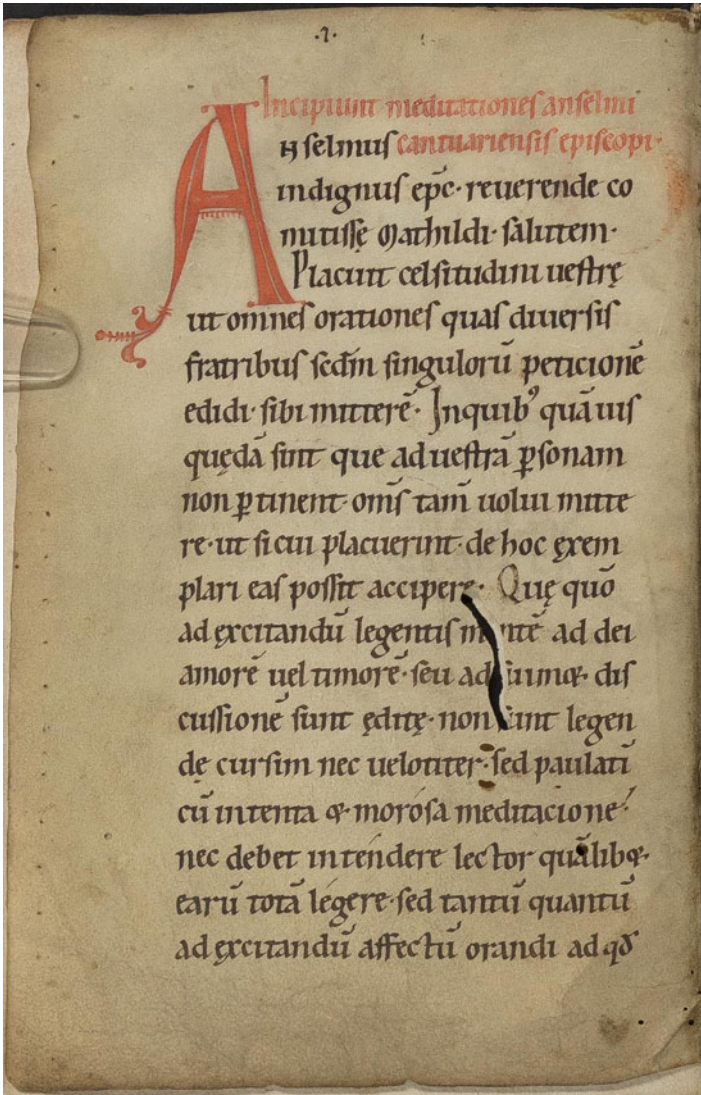 .1.
Incipiunt meditationes anselmi
Anselmus cantuariensis episcopi·
indignus ep̄c· reuerende co
mitissę Mathildi· salutem·
Placuit celsitudini uestrę
ut omnes orationes quas diuersis
fratribus scd̄m singulorū peticionē
edidi· sibi mitterē· Inquibꝰ quāuis
quędā sint que ad uestrā ꝑsonam
non ꝑtinent· om̄s tam̄ uolui mitte
re· ut si cui placuerint· de hoc ęxem
plari eas possit accipere· Quę quō
ad ęxcitandū legentis mentē ad dei
amorē uel timorē· seu ad suimꝫ dis
cussionē sunt ęditę· non sunt legen
dę cursim nec uelotiter· sed paulatī
cū intenta &· morosa meditacione·
nec debet intendere lector quālibꝫ·
earū totā legere· sed tantū quantū
ad ęxcitandū affectū orandi ad qđ